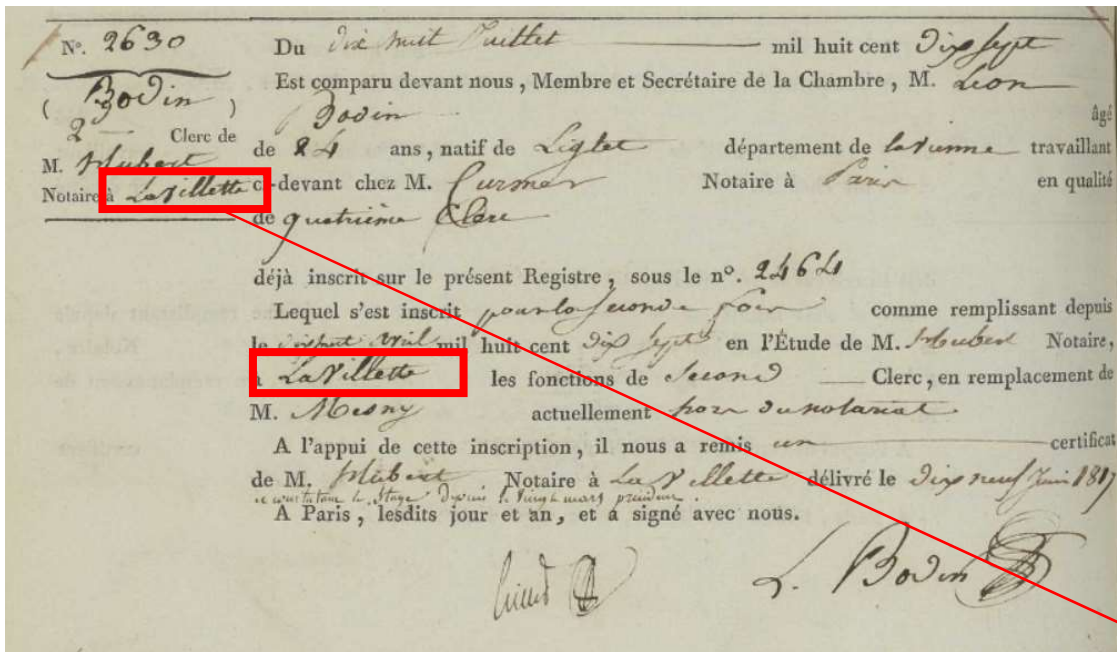 N°. 2630
( Bodin )
2 Clerc de
M. Hubert
Notaire à La Villette
Du dix huit Juillet mil huit cent Dix sept
Est comparu devant nous, Membre et Secrétaire de la Chambre, M. Léon
Bodin âgé
de 24 ans, natif de Liglet département de la Vienne travaillant
ci-devant chez M. Curmer Notaire à Paris en qualité
de quatrième Clerc
déjà inscrit sur le présent Registre, sous le n°. 2464
Lequel s'est inscrit pour la seconde fois comme remplissant depuis
le avril mil huit cent dix sept en l'Étude de M. Hubert Notaire,
à La Villette les fonctions de second Clerc, en remplacement de
M. Mesny actuellement hors du notariat
A l'appui de cette inscription, il nous a remis un certificat
de M. Hubert Notaire à La Villette délivré le dix neuf Juin 1817
le Stage depuis le vingt mars
A Paris, lesdits jour et an, et a signé avec nous.
L. Bodin